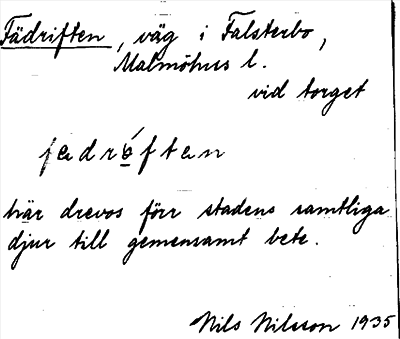 Fädriften, väg i Falsterbo,
Malmöhus l.
vid torget
fɐdrǿftɐn
här drevos förr stadens samtliga
djur till gemensamt bete.
Nils Nilsson 1935